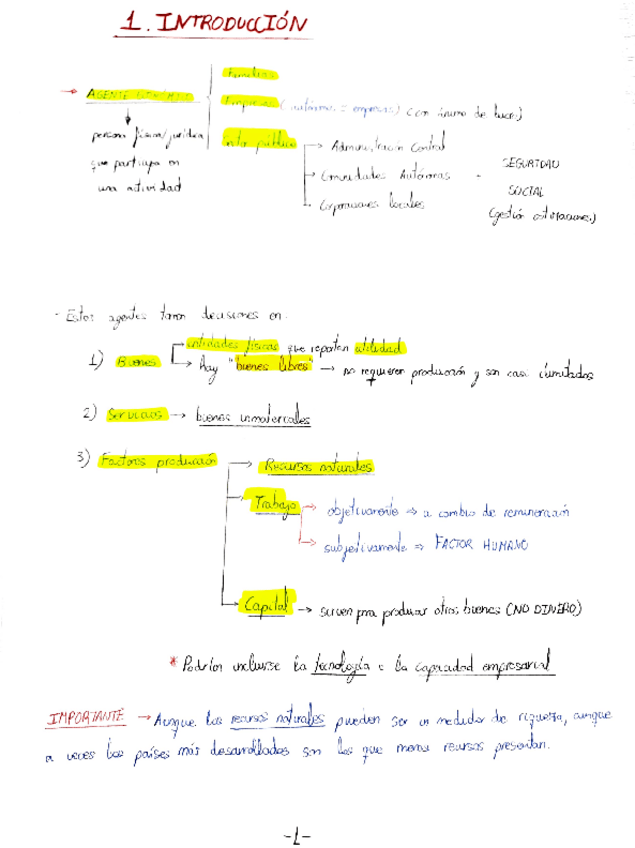 1. INTRODUCCIÓN
Familias
→ AGENTE ECONÓMICO
Empresas (autónomos = empresas) (con ánimo de lucro)
persona física/jurídica
que participa en
una actividad
público
→ Administración Central
→ Comunidades Autónomas -
→ Corporaciones locales
SEGURIDAD
SOCIAL
(gestión cotizaciones)
- Estos agentes toman decisiones en:
1) Bienes
entidades físicas que reportan utilidad
→ Hay "bienes libres" → no requieren producción y son casi ilimitados
2) Servicios → bienes inmateriales
3) Factores producción
→ Recursos naturales
→ Trabajo
→ objetivamente ⇒ a cambio de remuneración
→ subjetivamente ⇒ FACTOR HUMANO
→ Capital → sirven para producir otros bienes (NO DINERO)
* Podrían incluirse la tecnología e la capacidad empresarial
IMPORTANTE → Aunque los recursos naturales pueden ser un medidor de riqueza, aunque
a veces los países más desarrollados son los que menos recursos presentan.
-1-